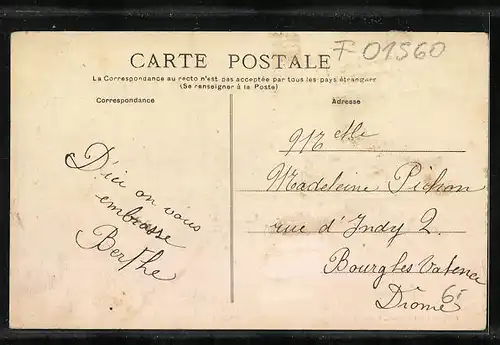 CARTE POSTALE
F 01560
La Correspondance au recto n'est pas acceptée par tous les pays étrangers
(Se renseigner à la Poste)
Correspondance
Adresse
D'ici on vous
embrasse
Berthe
Melle
Madeleine Pichon
rue d'Indy 2.
Bourg les Valence
Drôme
6.-